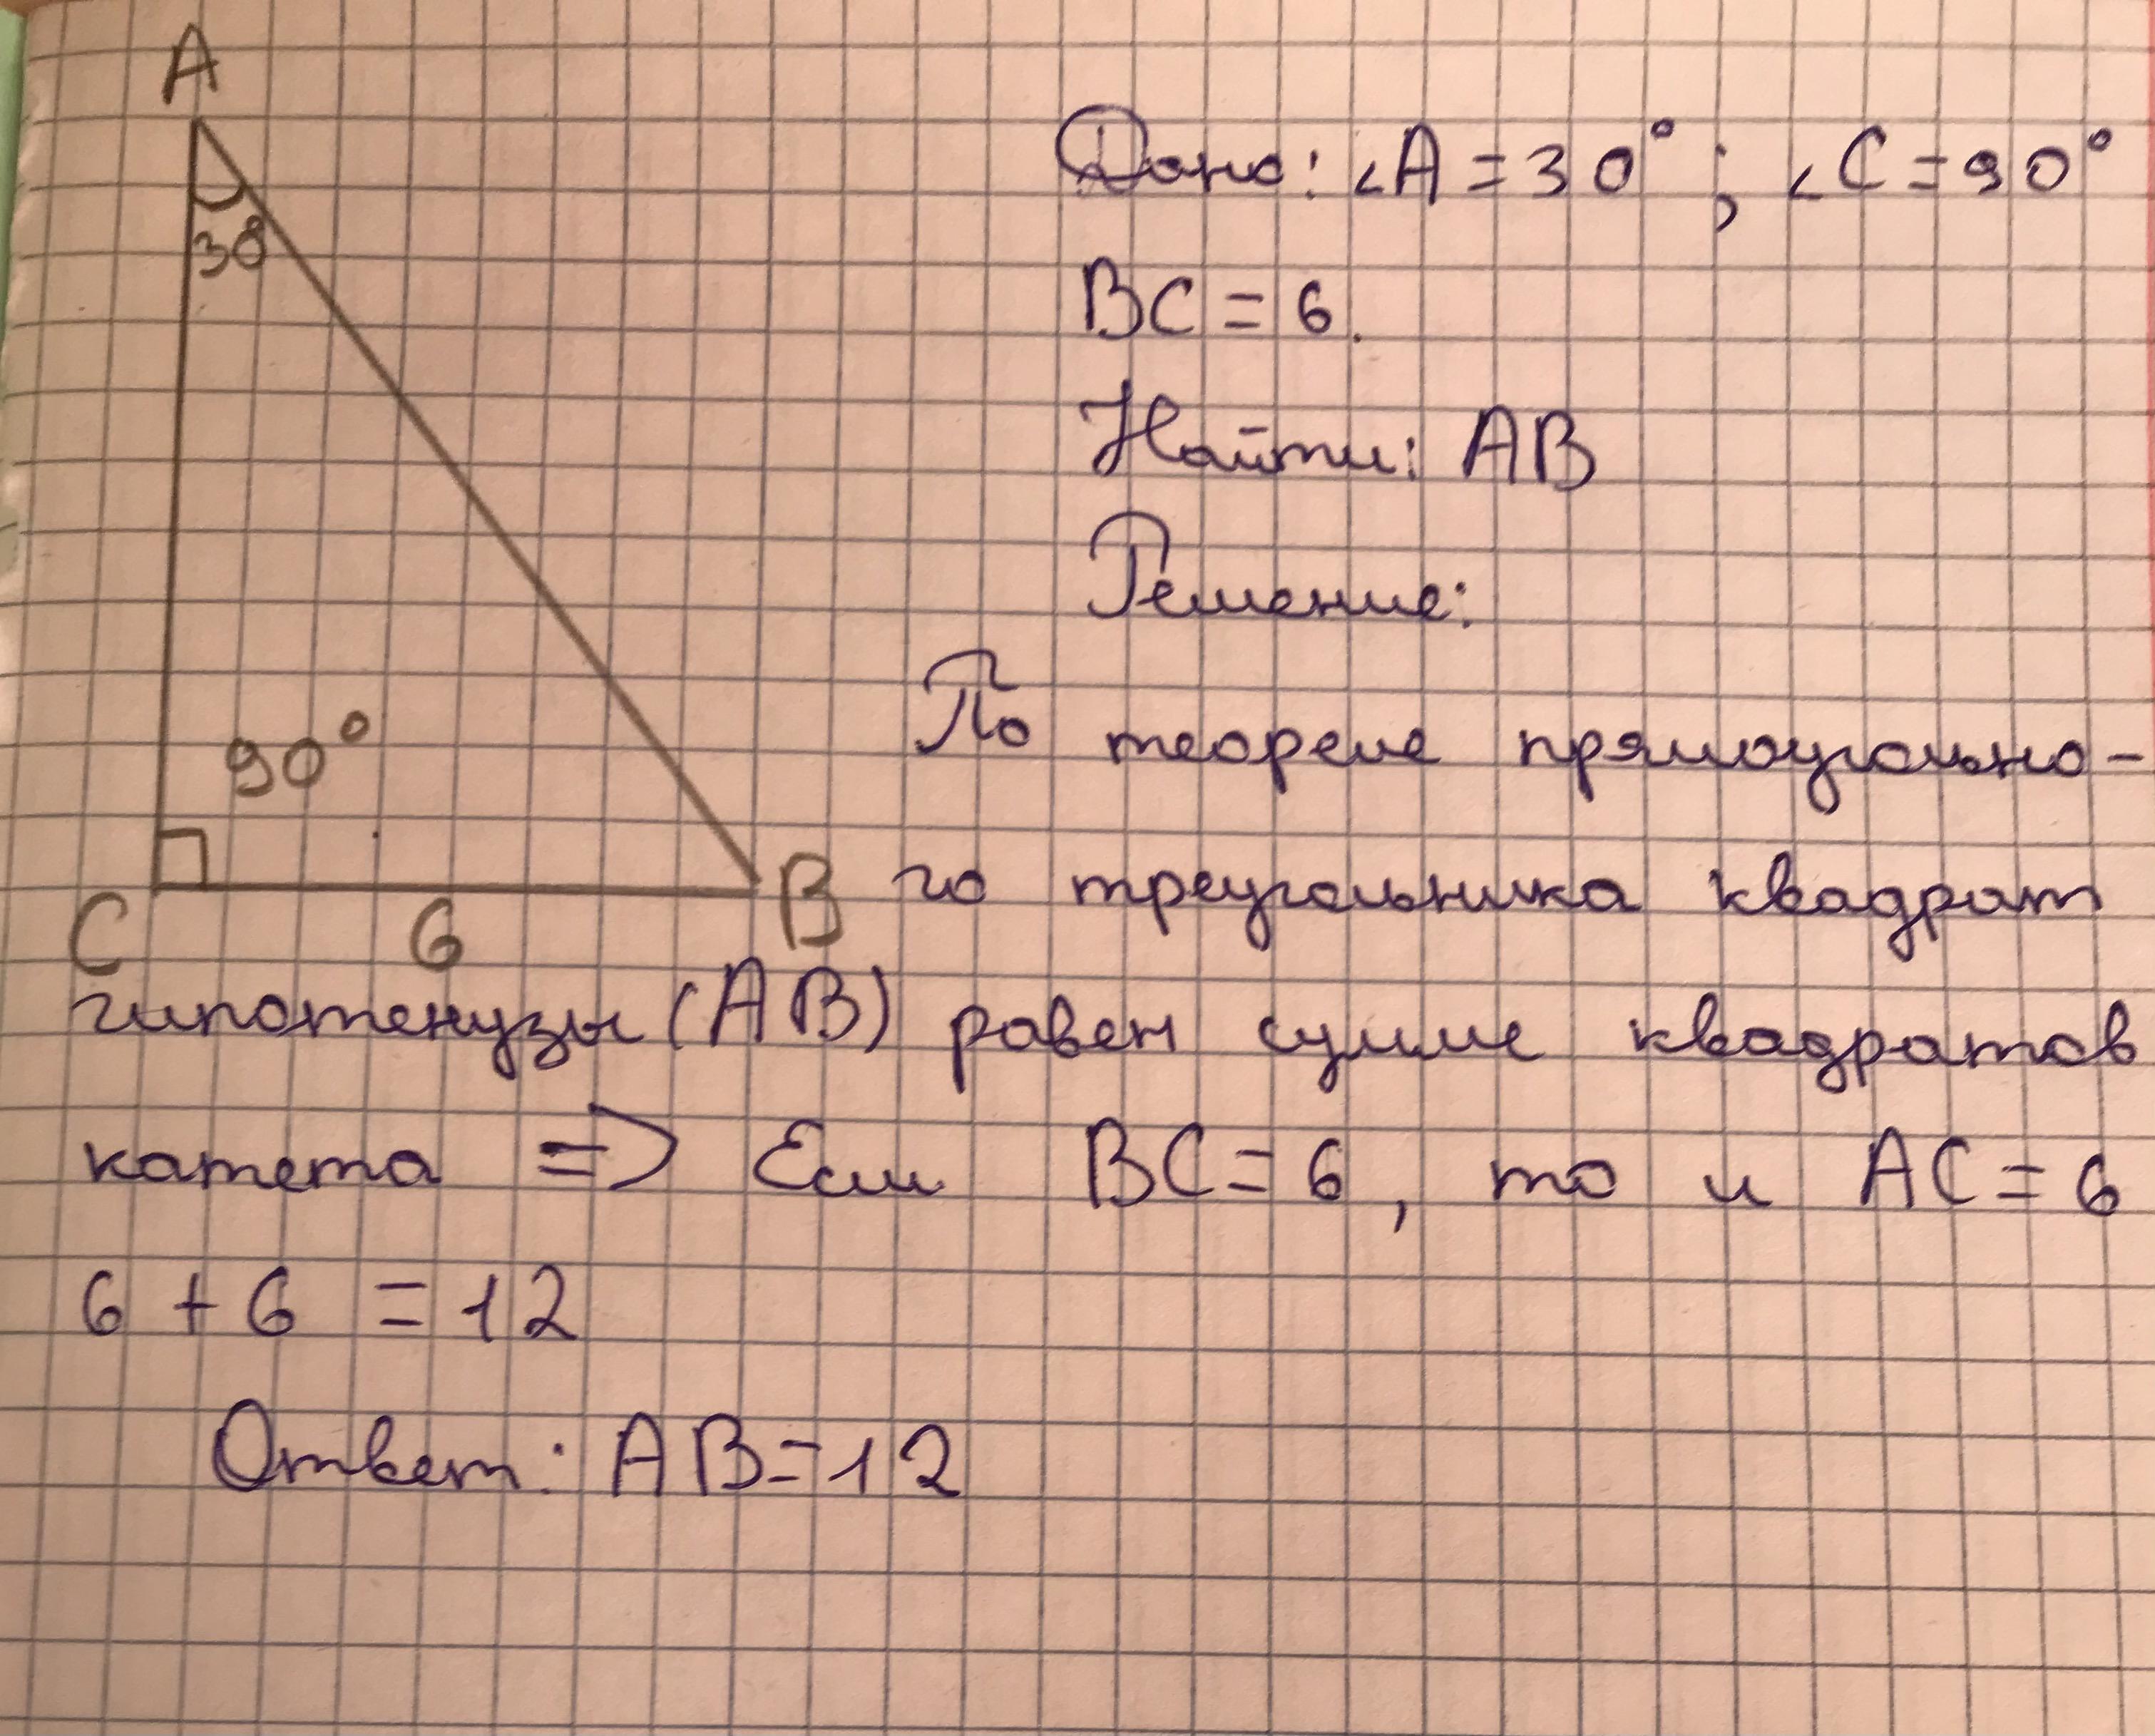 A
30°
90°
C
6
B
Дано: ∠A = 30° ; ∠C = 90°
BC = 6.
Найти: AB
Решение:
По теореме прямоугольно-
го треугольника квадрат
гипотенузы (AB) равен сумме квадратов
катета => Если BC = 6, то и AC = 6
6 + 6 = 12
Ответ: AB = 12